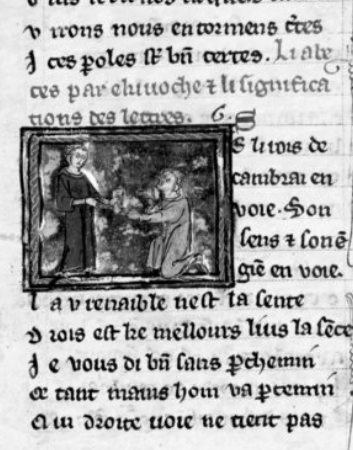 v irons nous en tormens c̃tes
J ces poles st bñ certes. Li abe
ces par ekiuoche ⁊ li significa
tions des lettres. 6. S
S li rois de
cambrai en
voie. Son
sens ⁊ son ē
giē en voie.
l a v renaible nest la sente
D rois est ke mellours lius la sēte
J e vous di bñ sans ꝑchemin
tant mains hom va ꝑ cemin
Q ui droite uoie ne tient pas